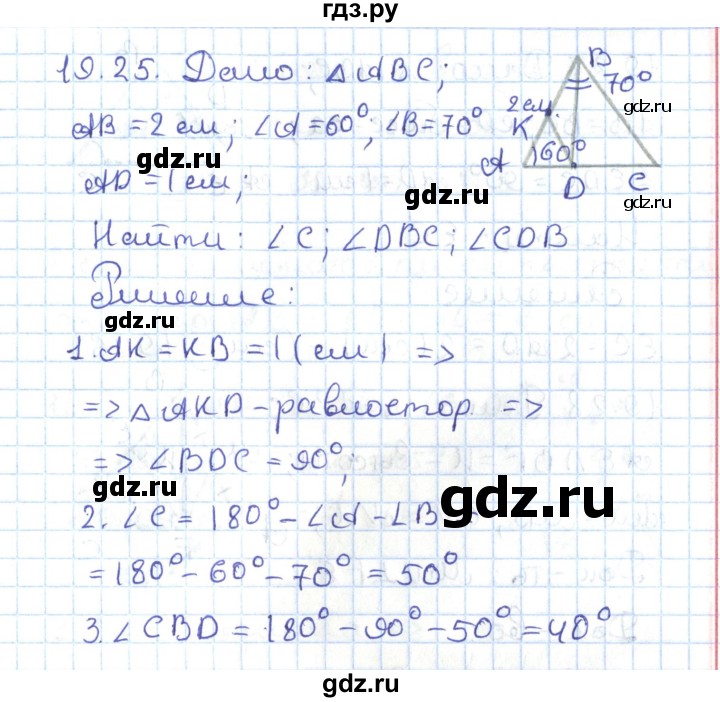 гдз.ру
19.25. Дано: △ABC;
AB = 2 см; ∠A = 60°; ∠B = 70°
AD = 1 см;
B
70°
2 см
K
A
60°
D
C
gdz.ru
gdz.ru
gdz.ru
gdz.ru
Найти: ∠C; ∠DBC; ∠CDB
Решение:
gdz.ru
gdz.ru
1. AK = KB = 1 (см) =>
=> △AKD - равностор. =>
gdz.ru
=> ∠BDC = 90°;
gdz.ru
gdz.ru
2. ∠C = 180° - ∠A - ∠B =
= 180° - 60° - 70° = 50°
gdz.ru
3. ∠CBD = 180° - 90° - 50° = 40°
gdz.ru
gdz.ru
gdz.ru